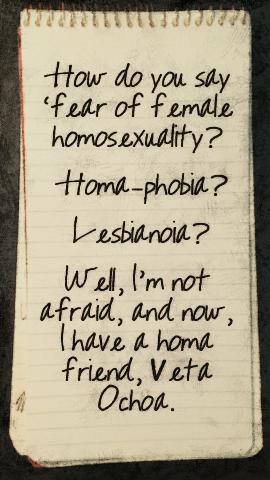 How do you say
'fear of female
homosexuality?
Homa-phobia?
Lesbianoia?
Well, I'm not
afraid, and now,
I have a homa
friend, Veta
Ochoa.